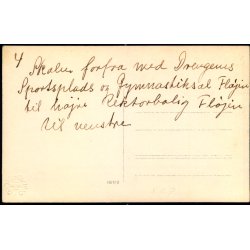 4
Skolen forfra med Drengenes
Sportsplads og Gymnastiksal Fløjen
til højre Rektorbolig Fløjen
til venstre